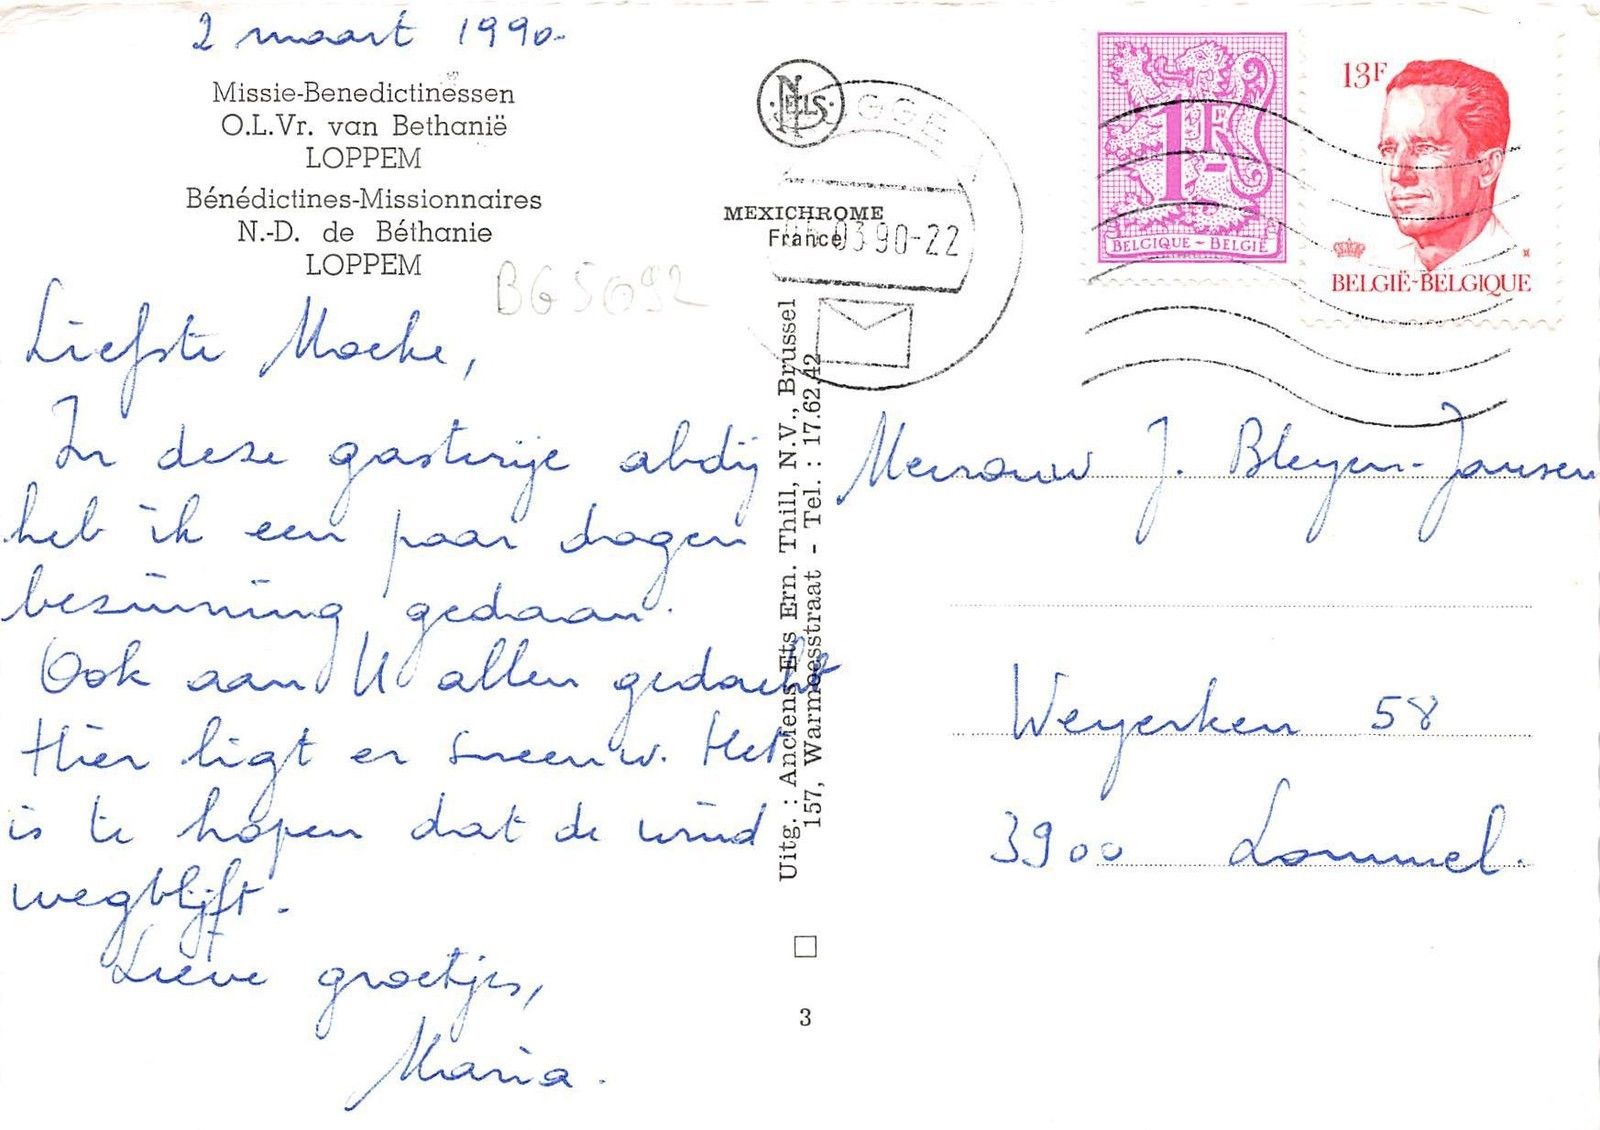 2 maart 1990.
Missie-Benedictinessen
O.L.Vr. van Bethanië
LOPPEM
Bénédictines-Missionnaires
N.-D. de Béthanie
LOPPEM
BG5092
Liefste Moeke,
In deze gasterije abdij
heb ik een paar dagen
bezinning gedaan.
Ook aan U allen gedacht
Hier ligt er sneeuw. Het
is te hopen dat de wind
wegblijft.
Lieve groetjes,
Maria.
NELS
MEXICHROME
France
Uitg. : Anciens Ets Ern. Thill, N.V., Brussel
157, Warmoesstraat - Tel. : 17.62.42
3
GGE
03 90-22
1F
BELGIQUE - BELGIË
13F
BELGIË-BELGIQUE
Mevrouw J. Bleyen-Jansen
Weyerken 58
3900 Lommel.